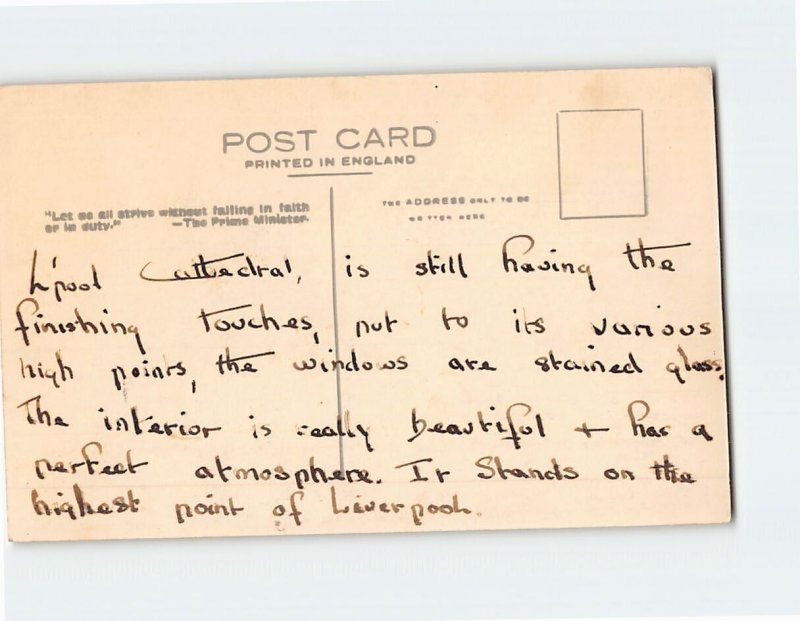 POST CARD
PRINTED IN ENGLAND
"Let us all strive without failing in faith
or in duty." —The Prime Minister.
THE ADDRESS ONLY TO BE
WRITTEN HERE
L'pool Cathedral, is still having the
finishing touches, put to its various
high points, the windows are stained glass.
The interior is really beautiful + has a
perfect atmosphere. It stands on the
highest point of Liverpool.